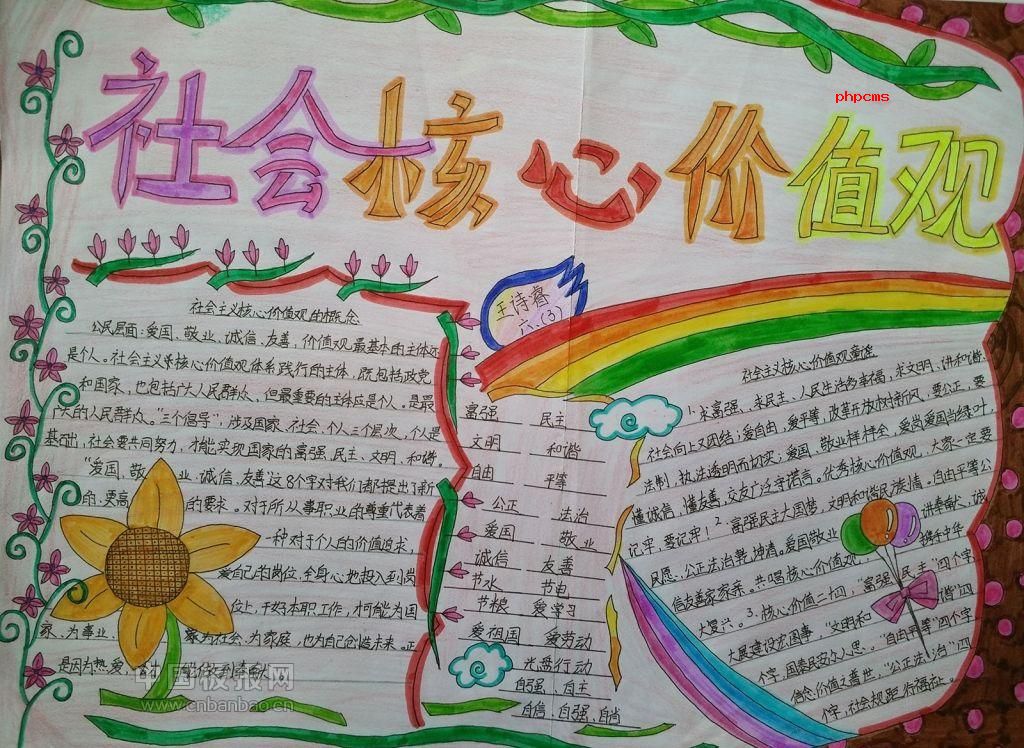 社会核心价值观
phpcms
王诗睿
六.(3)
社会主义核心价值观的概念
公民层面：爱国、敬业、诚信、友善，价值观最基本的主体还
是个人。社会主义核心价值观体系践行的主体，既包括政党
和国家，也包括广大人民群众，但最重要的主体应是个人。是最
广大的人民群众。"三个倡导"，涉及国家、社会、个人三个层次，个人是
基础，社会要共同努力，才能实现国家的富强、民主、文明、和谐。
"爱国、敬业、诚信、友善"这8个字对我们都提出了新
的、更高的要求。对于所从事职业的尊重代表着
一种对于个人的价值追求，
爱自己的岗位，全身心地投入到岗
位上，干好本职工作，才可能为国
家、为事业、家为社会、为家庭，也为自己创造未来。正
是因为热爱，
富强 民主
文明 和谐
自由 平等
公正 法治
爱国 敬业
诚信 友善
节水 节电
节粮 爱学习
爱祖国 爱劳动
光盘行动
自强、自主
自信、自强、自尚
社会主义核心价值观童谣
1.求富强、求民主、人民生活奔幸福，求文明、讲和谐、
社会向上又团结；爱自由、爱平等，改革开放树新风，要公正、要
法制，执法透明而切实；爱国、敬业样样全，爱岗爱国当绿叶，
懂诚信，懂友善，交友广泛守诺言。优秀核心价值观，大家一定要
记牢，要记牢！2、富强民主人国梦，文明和谐民族情。自由平等公
民愿，公正法治乾坤清。爱国敬业讲奉献、诚
信友善家家亲。共唱核心价值观，携手中华
大复兴。3、核心价值二十四，"富强民主"四个字
大展建设宏图事，"文明和谐"四
个字，国泰民安众人思。"自由平等"四个字
信念价值之普世，"公正法治"四
个字，社会规距行福祉。
中国板报网
www.cnbanbao.cn